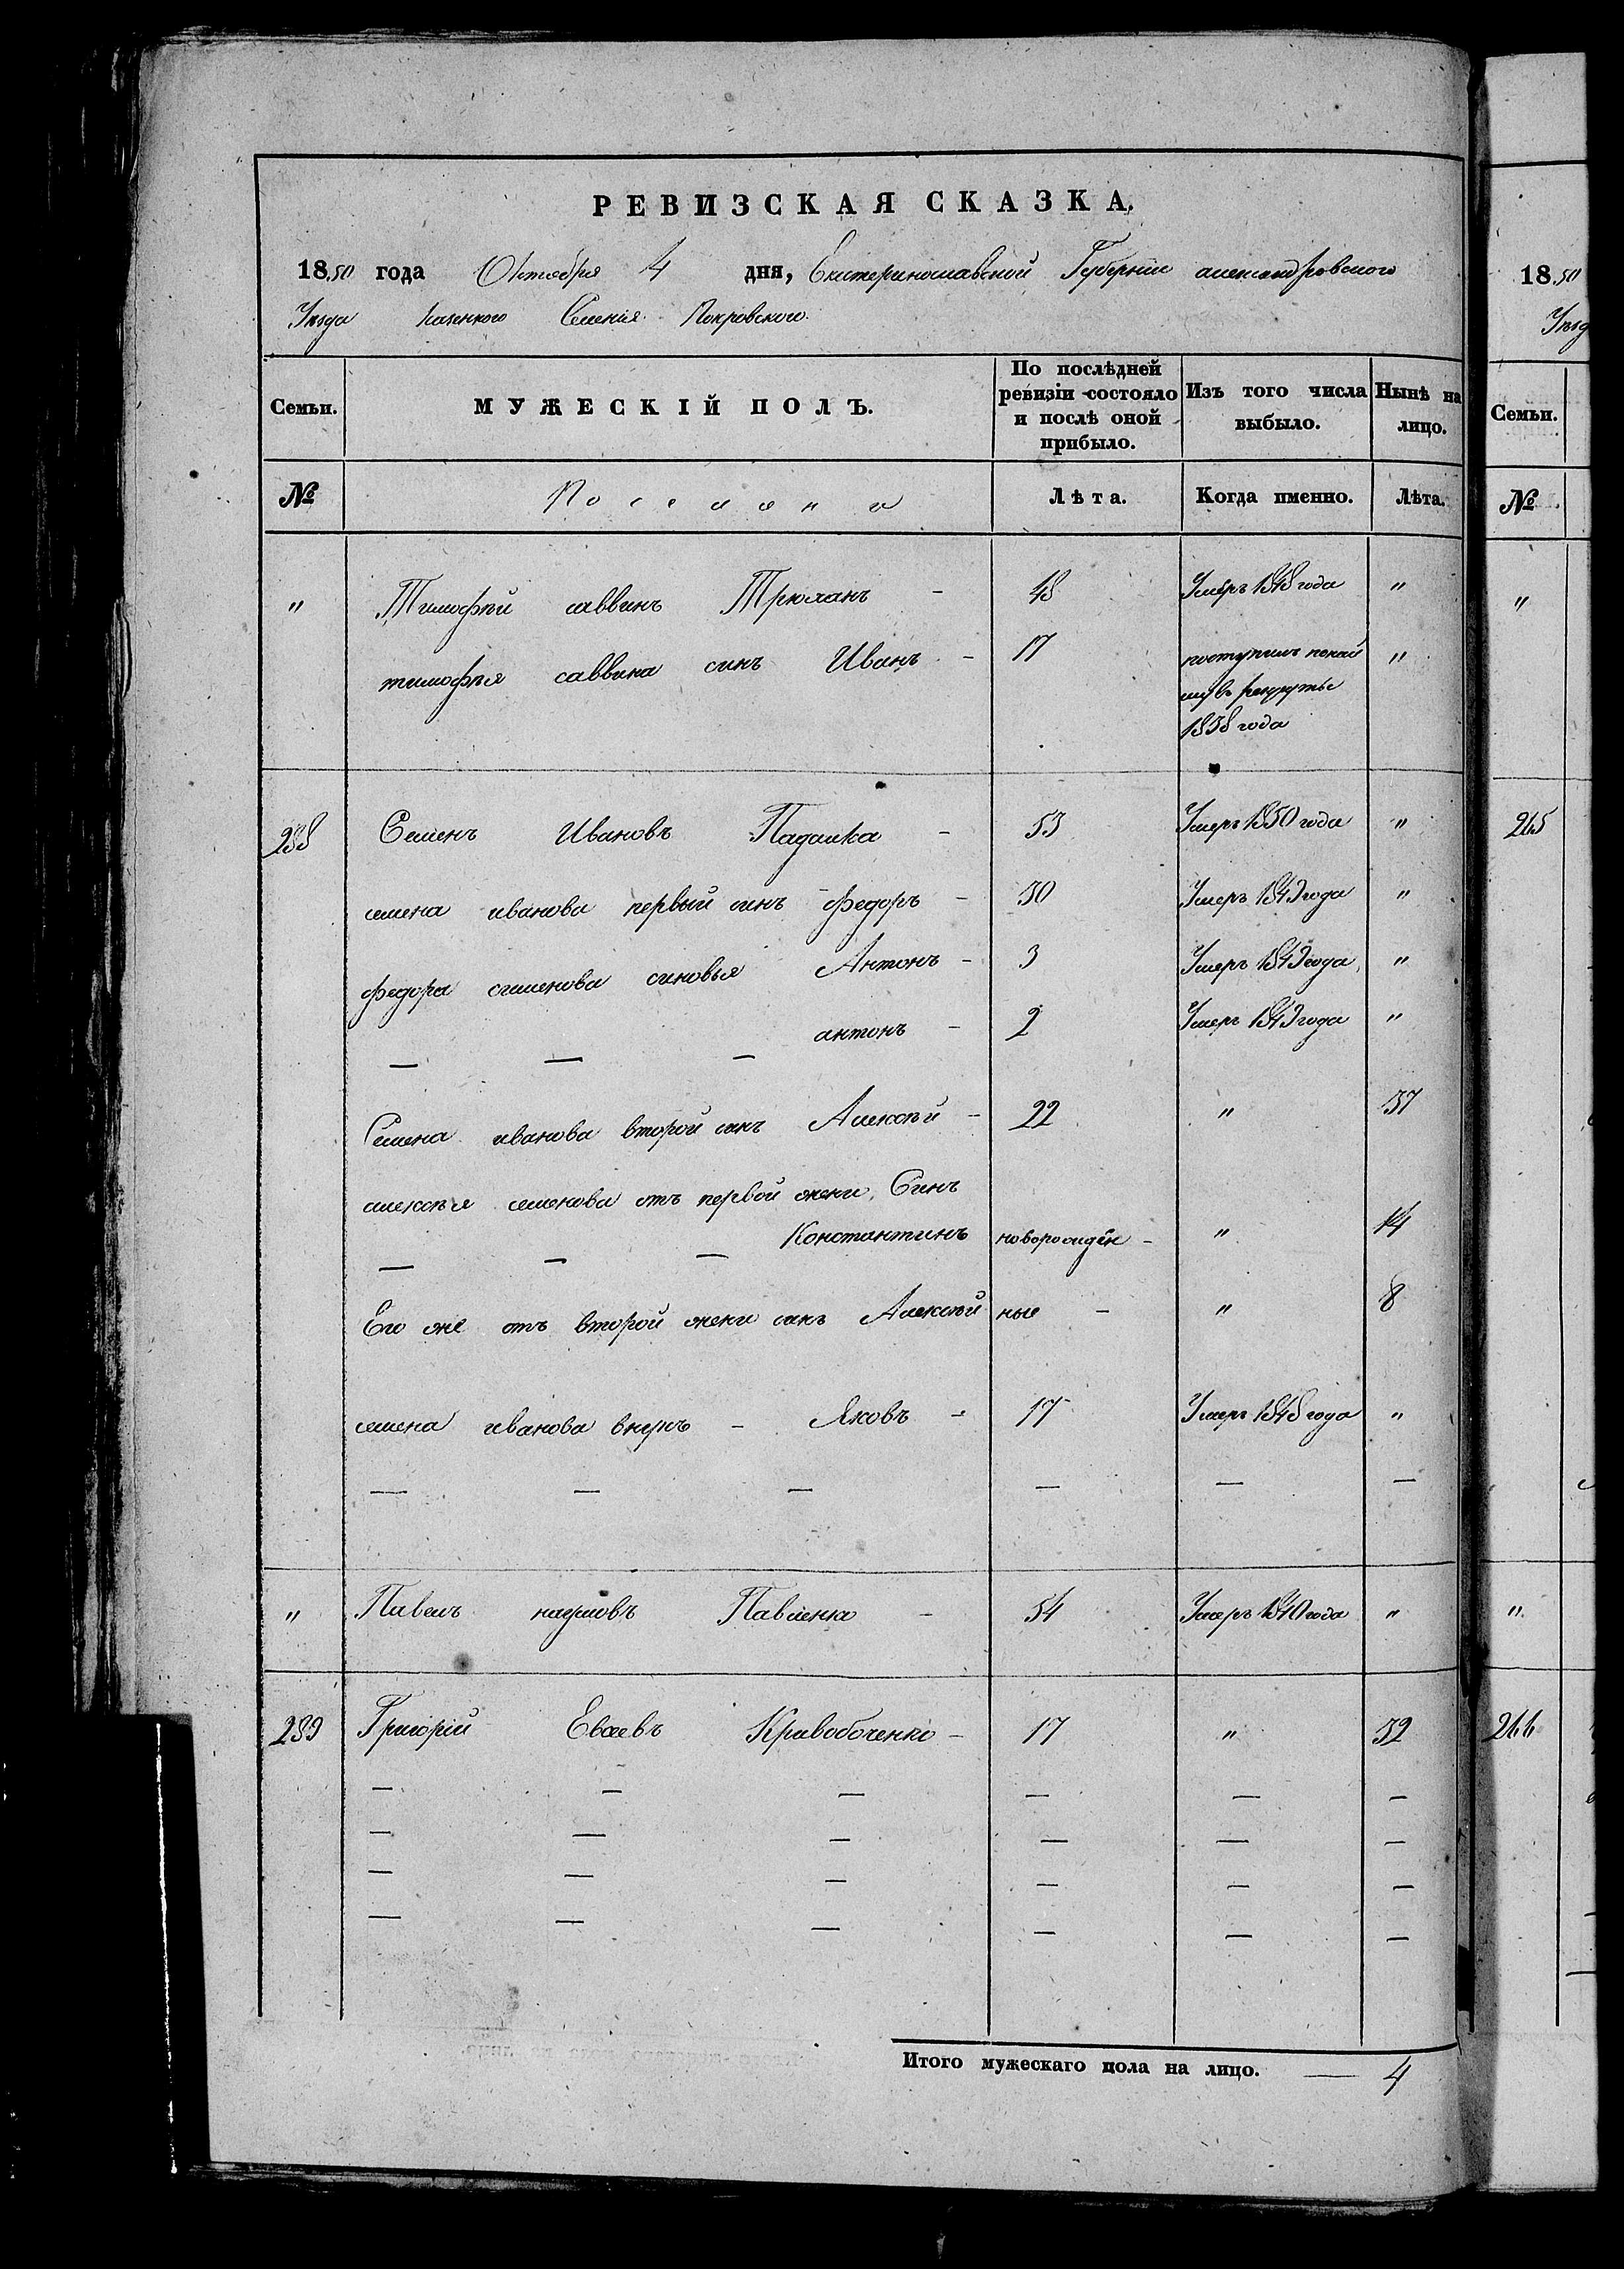 РЕВИЗСКАЯ СКАЗКА.
1850 года Октября 4 дня, Екатеринославской Губерніи александровского
Уезда казенного Селенія Покровского.
Семьи. МУЖЕСКІЙ ПОЛЪ. По послѣдней ревизіи состояло и послѣ оной прибыло. Изъ того числа выбыло. Нынѣ на лицо.
№ Поселяни Лѣта. Когда именно. Лѣта.
" Тимофѣй саввинъ - 48 Умеръ 1848 года "
тимофѣя саввина синъ Иванъ - 17 поступилъ "
въ рекруты
1838 года
238 Семенъ Ивановъ Падалка - 53 Умеръ 1850 года "
семена иванова первый синъ федоръ - 30 Умеръ 1849 года "
федора семенова синовья Антонъ - 3 Умеръ 1849 года "
— — — антонъ - 2 Умеръ 1849 года "
Семена иванова второй синъ Алексѣй - 22 " 37
алексѣя семенова отъ первой жени Синъ
— — — Константинъ новорожден - " 14
Его же отъ второй жени синъ Алексѣй ные - " 8
семена иванова внукъ - Яковъ - 17 Умеръ 1848 года "
— — — — — —
" Павелъ наумовъ Павленко - 54 Умеръ 1840 года "
239 Григорій Кривобоченко - 17 " 32
— — — — — —
— — — — — —
— — — — — —
— — — — — —
Итого мужескаго пола на лицо. — 4
1850
Уезд
Семьи.
№
"
265
"
266